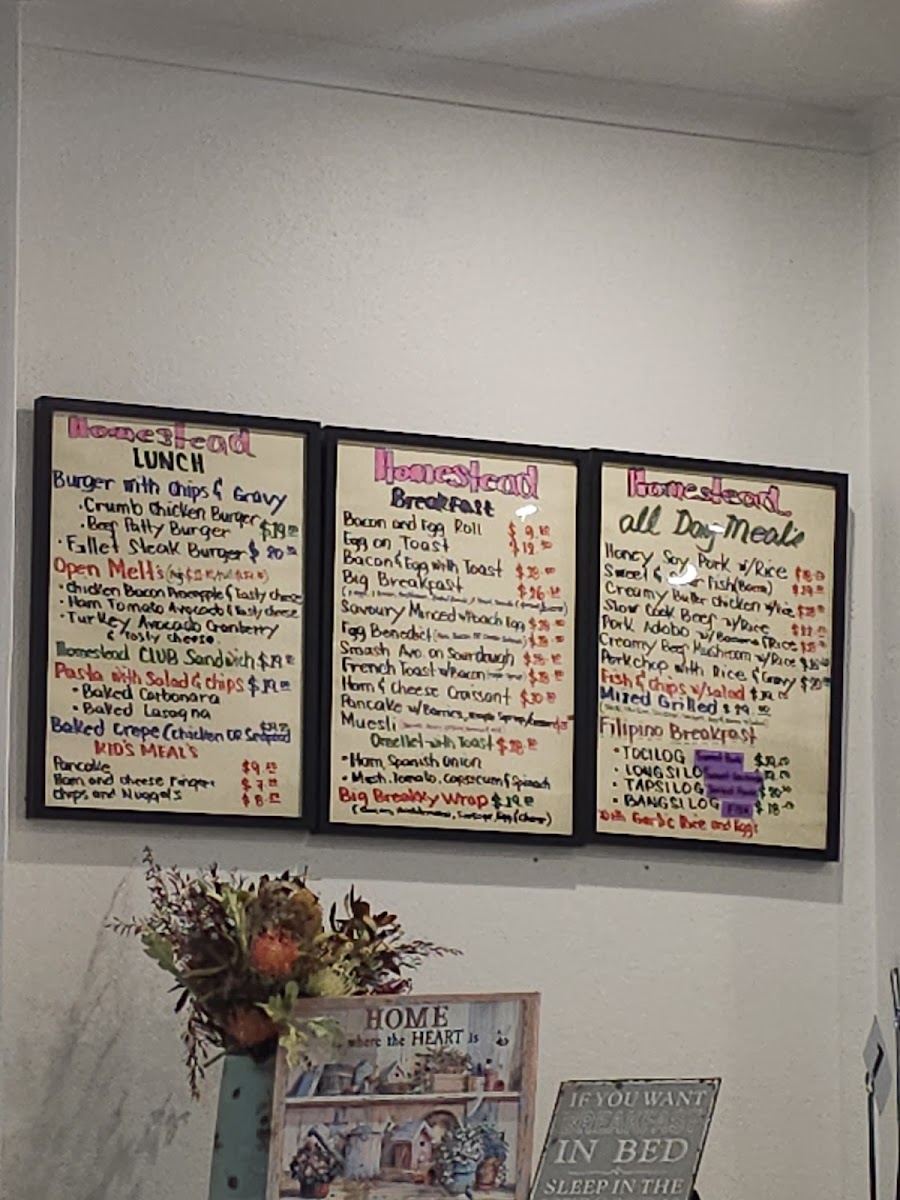 Homestead
LUNCH
Burger with Chips & Gravy
• Crumb Chicken Burger
• Beef Patty Burger $19.00
• Fillet Steak Burger $20.50
Open Melt's
• Chicken Bacon Pineapple & Tasty cheese
• Ham Tomato Avocado & Tasty cheese
• Turkey Avocado Cranberry
& Tasty cheese.
Homestead CLUB Sandwich $19.00
Pasta with Salad & chips $19.00
• Baked Carbonara
• Baked Lasagna
Baked Crepe (Chicken OR Seafood
KID'S MEAL'S
Pancake $9.50
Ham and cheese Fingers $7.00
Chips and Nuggets $8.00
Homestead
Breakfast
Bacon and Egg Roll $9.50
Egg on Toast $12.50
Bacon & Egg with Toast
Big Breakfast $26.50
Savoury Minced w/Poach Egg
Egg Benedict
Smash Avo. on Sourdough
French Toast w/Bacon
Ham & Cheese Croissant
Pancake w/Berries,
Muesli
Omellet with Toast
• Ham Spanish Onion
• Mush. Tomato, Capsicum & Spinach
Big Breakky Wrap $19.00
Homestead
all Day Meal's
Honey Soy Pork w/Rice
Sweet & Sour Fish
Creamy Butter Chicken w/Rice
Slow Cook Beef w/Rice
Pork Adobo w/ Rice
Creamy Beef Mushroom w/Rice
Porkchop with Rice & Gravy $20
Fish & Chips w/Salad
Mixed Grilled
Filipino Breakfast
• TOCILOG
• LONGSILOG
• TAPSILOG
• BANGSILOG FISH
with Garlic Rice and Eggs
HOME
where the HEART is
IF YOU WANT
BREAKFAST
IN BED
SLEEP IN THE